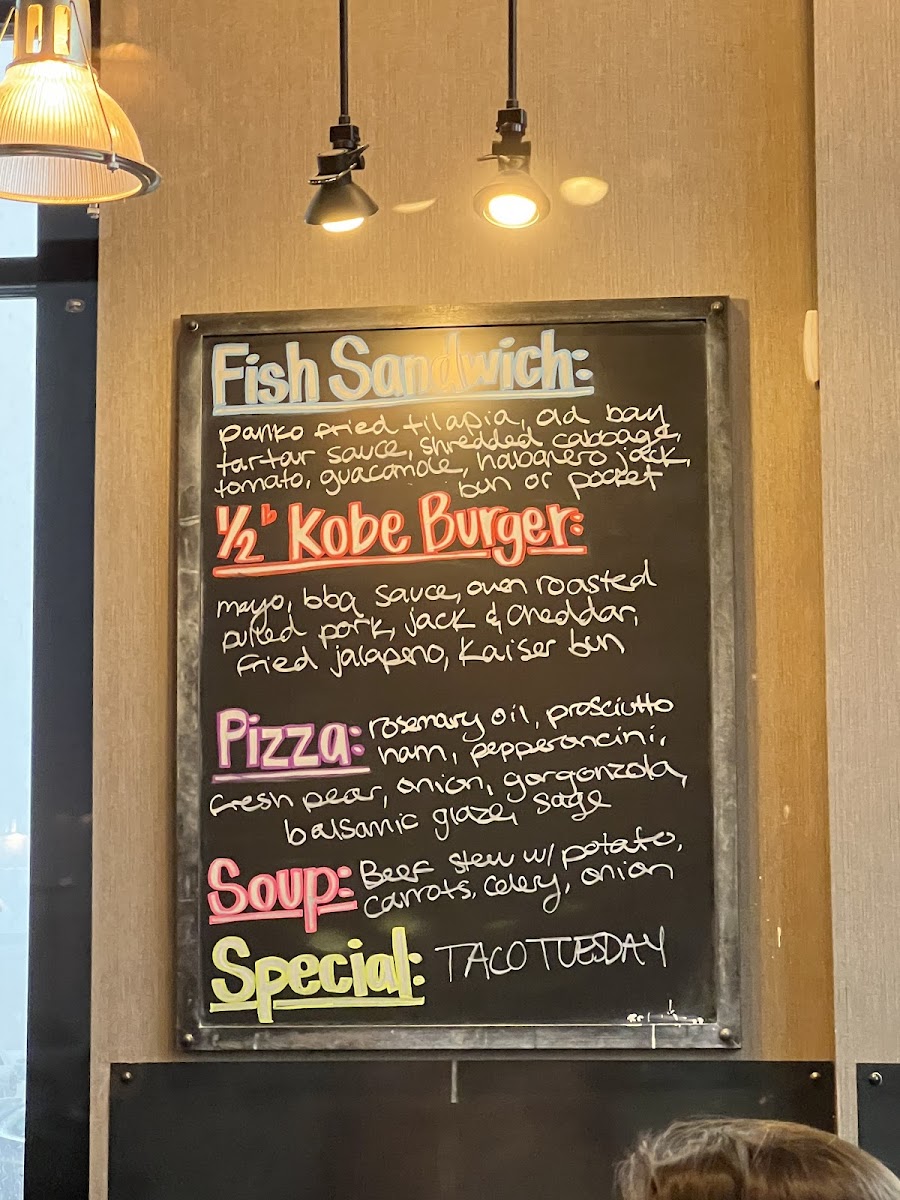 Fish Sandwich:
panko fried tilapia, old bay
tartar sauce, shredded cabbage,
tomato, guacamole, habanero jack,
bun or pocket
1/2 lb Kobe Burger:
mayo, bbq sauce, oven roasted
pulled pork, jack & cheddar,
fried jalapeno, kaiser bun
Pizza: rosemary oil, prosciutto
ham, pepperoncini,
fresh pear, onion, gorgonzola,
balsamic glaze, sage
Soup: Beef stew w/ potato,
carrots, celery, onion
Special: TACO TUESDAY